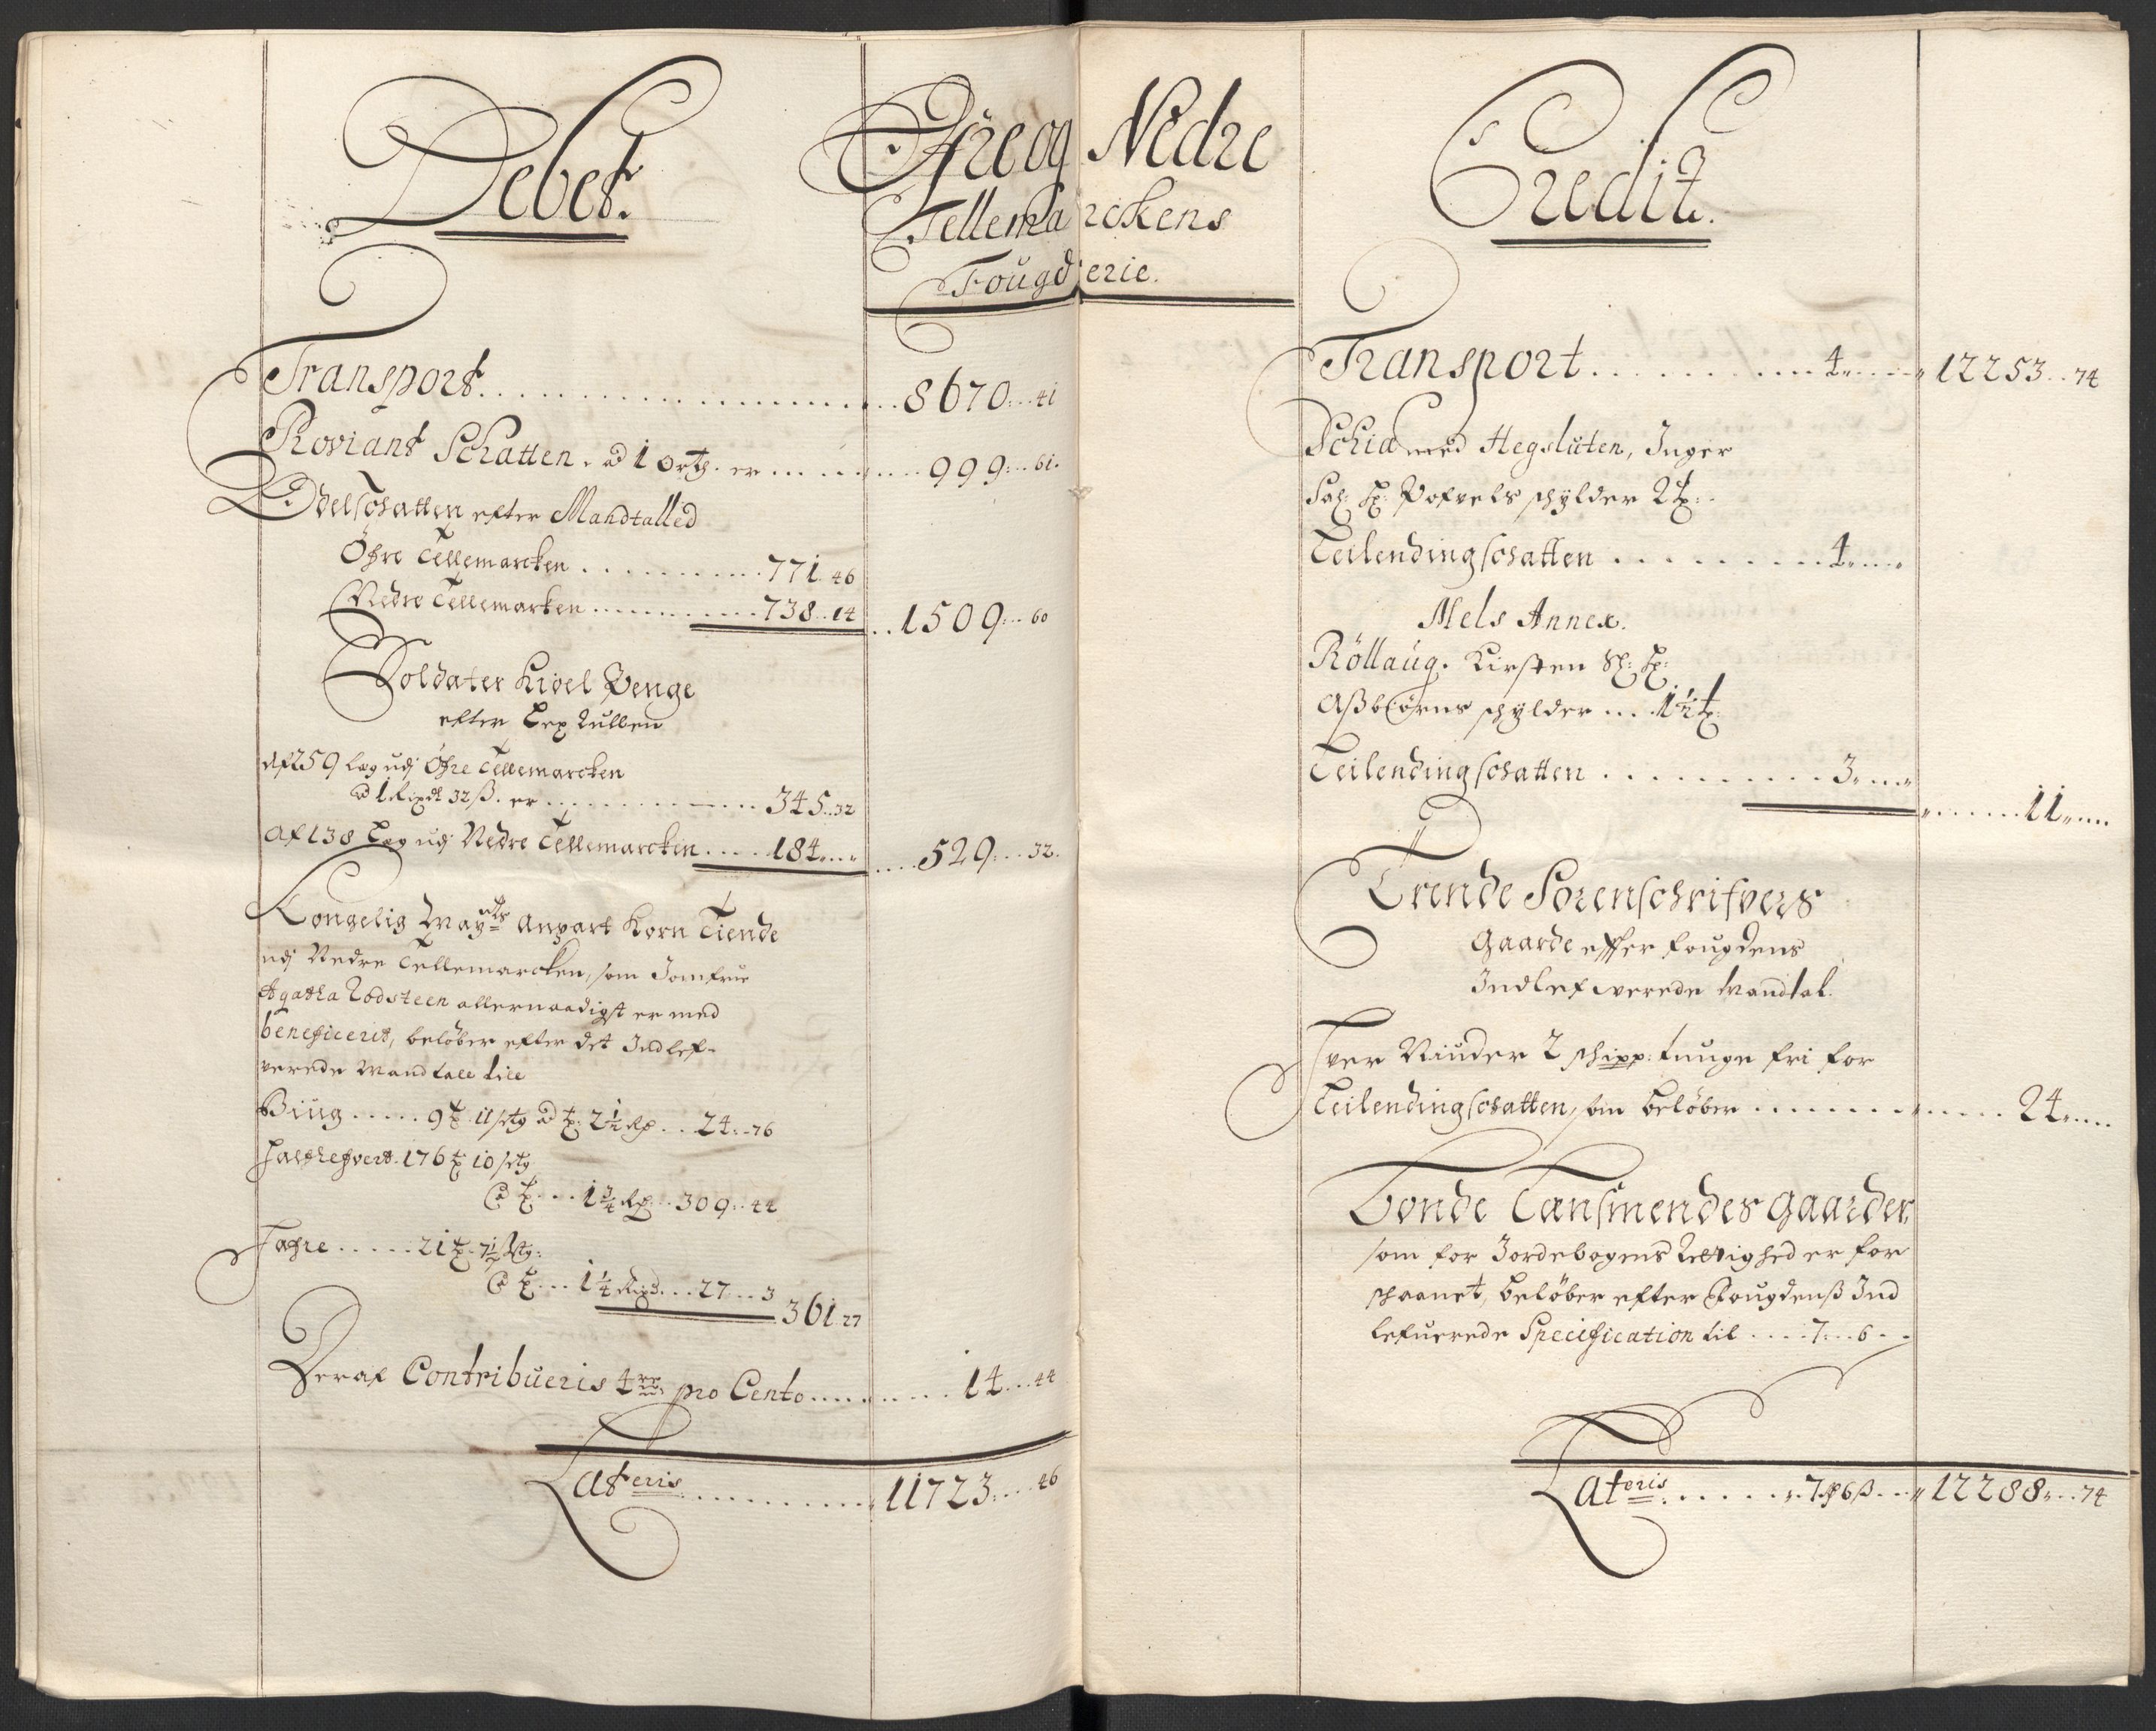 Debet.
Øfre og Nedre
Tellemarckens
Fougderie.
Transport . . . 8670 . . 41
Proviant Schatten. ad 1 ort. er . . . 999 . . 61.
Odelschatten efter Mandtalled
Øfre Tellemarcken . . . 771. 46
Nedre Tellemarken . . . 738 . . 14
. . 1509 . . 60
Soldater Kioel Penge
efter Leg Rullen
Af 259 Læg udj Øfre Tellemarcken
ad 1 Rixdl 32 ß. er . . . 345 . . 32
Af 138 Leg udj Nedre Tellemarcken . . . 184 . .
. . . 529 . . . 32.
Kongelig Mayts Anpart Korn Tiende
udj Nedre Tellemarcken, som Jomfrue
Agatha Rodsteen allernaadigst er med
beneficerit, beløber efter det Indlef-
verede Mandtall till
Biug . . . 9 t. 11 setg ad t. 2½ Rd . . 24 . . 76
Halflefvert. 176 t 10 setg
a t . . . 1¾ Rd . . 309 . . 44
Hafre . . . 21 t. 7½ setg:
a t . . . 1¼ Rixd . . . 27 . . 3
361 . 27
Deraf Contribueris 4re pro Cento . . . 14 . . . 44
Lateris . . . 11723 . . . 46
Credit.
Transport . . . 4 . . . 12253 . . 74
Schia med Hegsluten, Inger
Sal: Hr: Pofvels schylder 2 t:
Leilendingschatten . . . 4 . .
Mels Annex.
Röllaug. Kirsten Sl: Hr:
Aßbiørns schylder . . . 1½ t.
Leilendingschatten . . . 3 . .
. . . 11 . .
Trende Sorenschrifvers
Gaarde efter Fougdens
Indlefwerede Mandtal.
Tver Niuder 2 schipp: tunge fri for
Leilendingschatten, som beløber . . . 24 . .
Bonde Lensmendes gaarder
som for Jordebogens Rettighed er for
schaanet, beløber efter Fougdenß Ind
lefuerede Specification til . . . 7 . . 6 . .
Lateris . . . 7 ß 6 ß . . 12288 . . 74